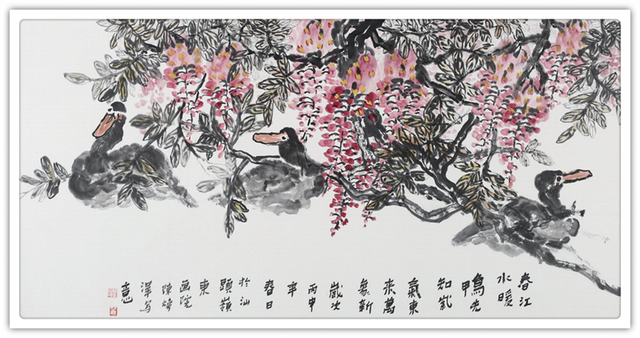 春江
水暖
鴨先
知紫
氣東
來萬
象新
歲次
丙申
年
春日
於汕
頭嶺
東
画院
陳
澤写
意